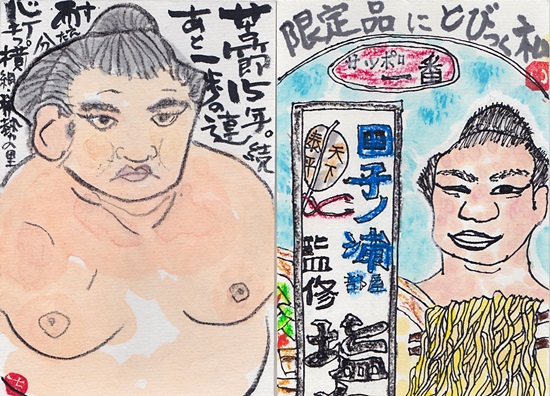 苦節15年。続
あと一歩の
心打つ横綱稀勢の里
限定品にとびつく私
サッポロ
一番
天下
泰平
田子ノ浦
部屋
監修
塩